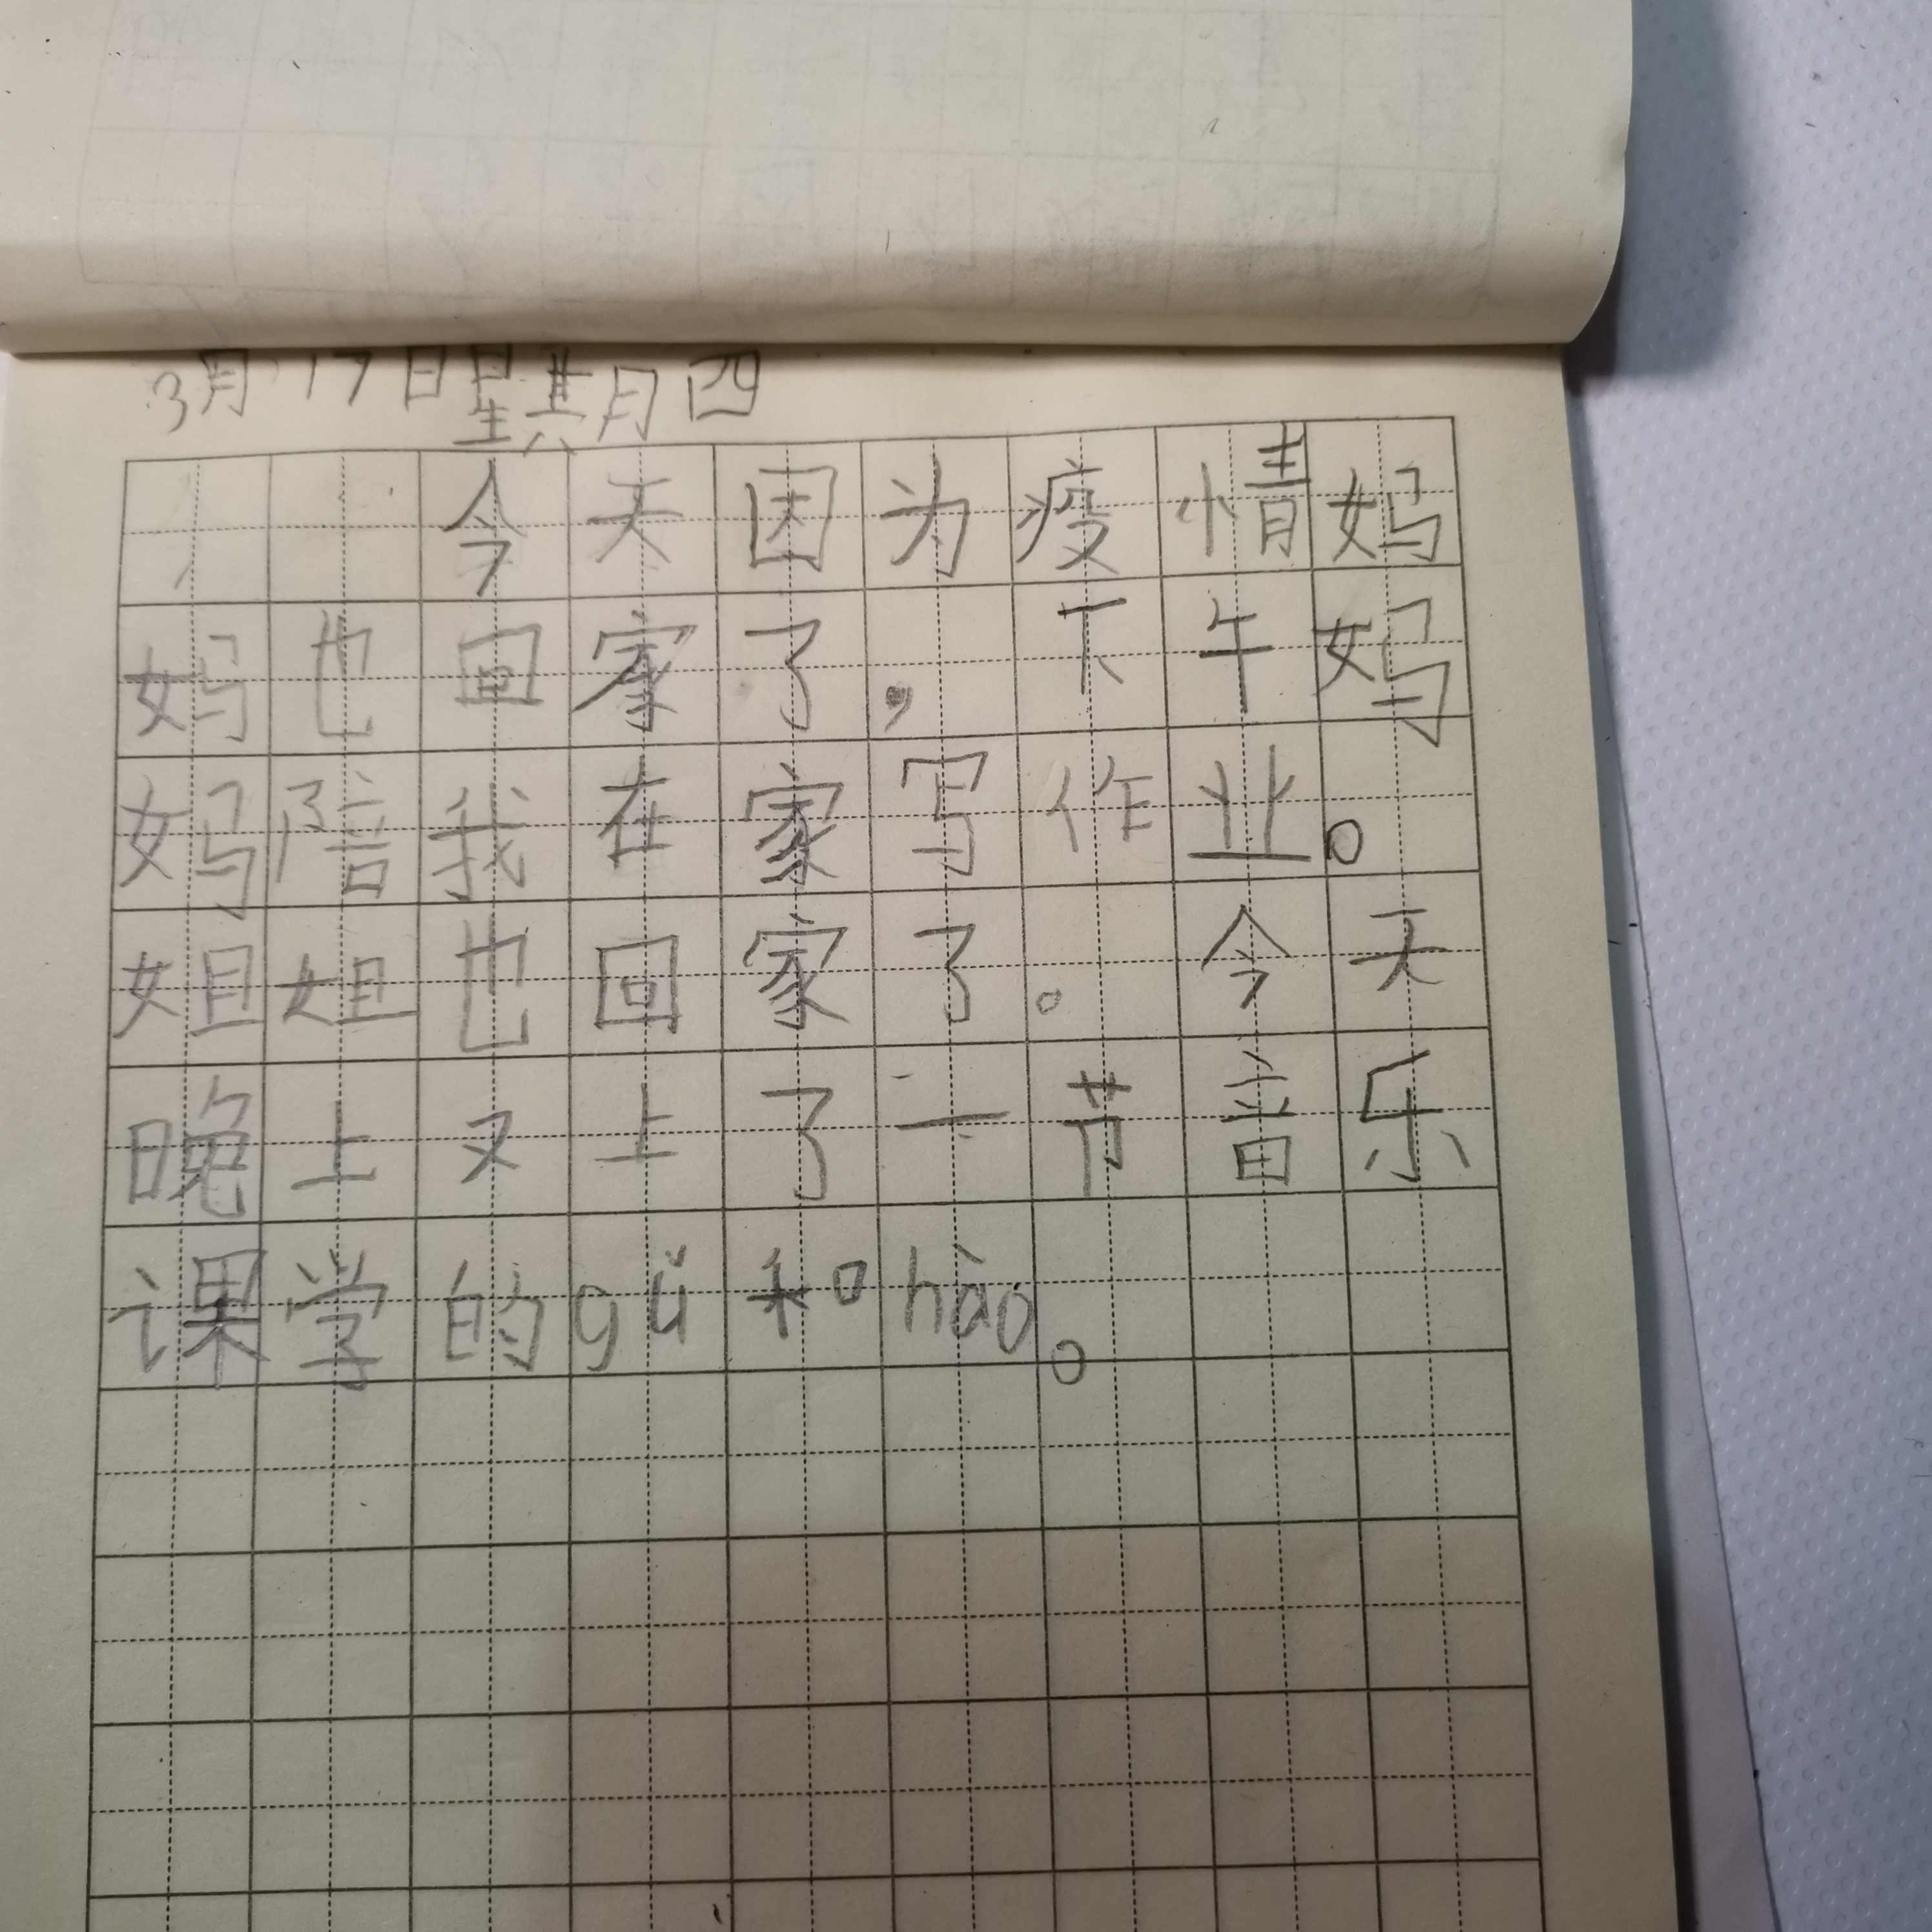 3月17日星期四
今天因为疫情妈
妈也回家了，下午妈
妈陪我在家写作业。
姐姐也回家了。今天
晚上又上了一节音乐
课学的gǔ和hào。